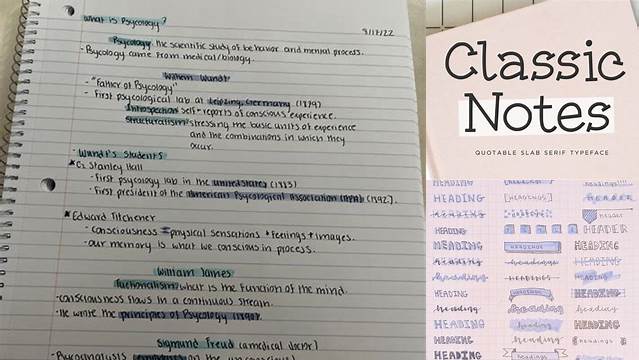 What is Psycology?
8/17/22
Psycology the scientific study of behavior and mental process.
- Psycology came from medical/biology.
Wilhem Wundt
- "Father of Psycology"
- First psycological lab at Leipzig, Germany (1879)
Introspection self-reports of conscious experience.
Structuralism stressing the basic units of experience
and the combinations in which they
occur.
Wundt's Students
G. Stanley Hall
- First psycology lab in the united states (1883)
- First president of the American Psycological Association
Edward Titchener
- consciousness = physical sensations + feelings + images.
- our memory is what we conscious in process.
William James
Fuctionalism what is the function of the mind.
- consciousness flows in a continuous stream.
- He wrote the principles of Psycology (1890).
Sigmund Freud (a medical doctor)
Classic
Notes
QUOTABLE SLAB SERIF TYPEFACE
HEADING
[HEADING]
HEADING
HEADINGS
HEADER
HEADING
HEADING
HEADER
HEADING
HEADINGS
HEADING
heading
headings
HEADING
heading
HEADINGS
HEADING
HEADING
HEADING
heading
headings
heading
HEADING
heading
HEADING
HEADING
heading
headings
HEADING
HEADING
heading